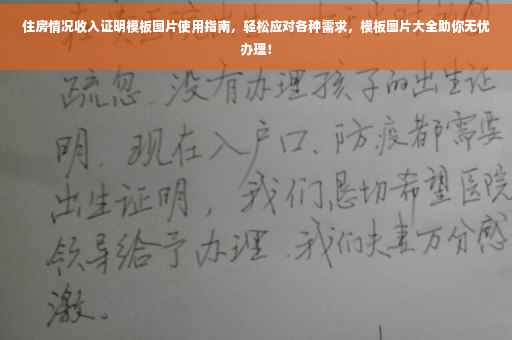 住房情况收入证明模板图片使用指南，轻松应对各种需求，模板图片大全助你无忧
办理！
疏忽、没有办理孩子的出生证
明、现在入户口、防疫都需要
出生证明，我们恳切希望医院
领导给予办理、我们夫妻万分感
激。